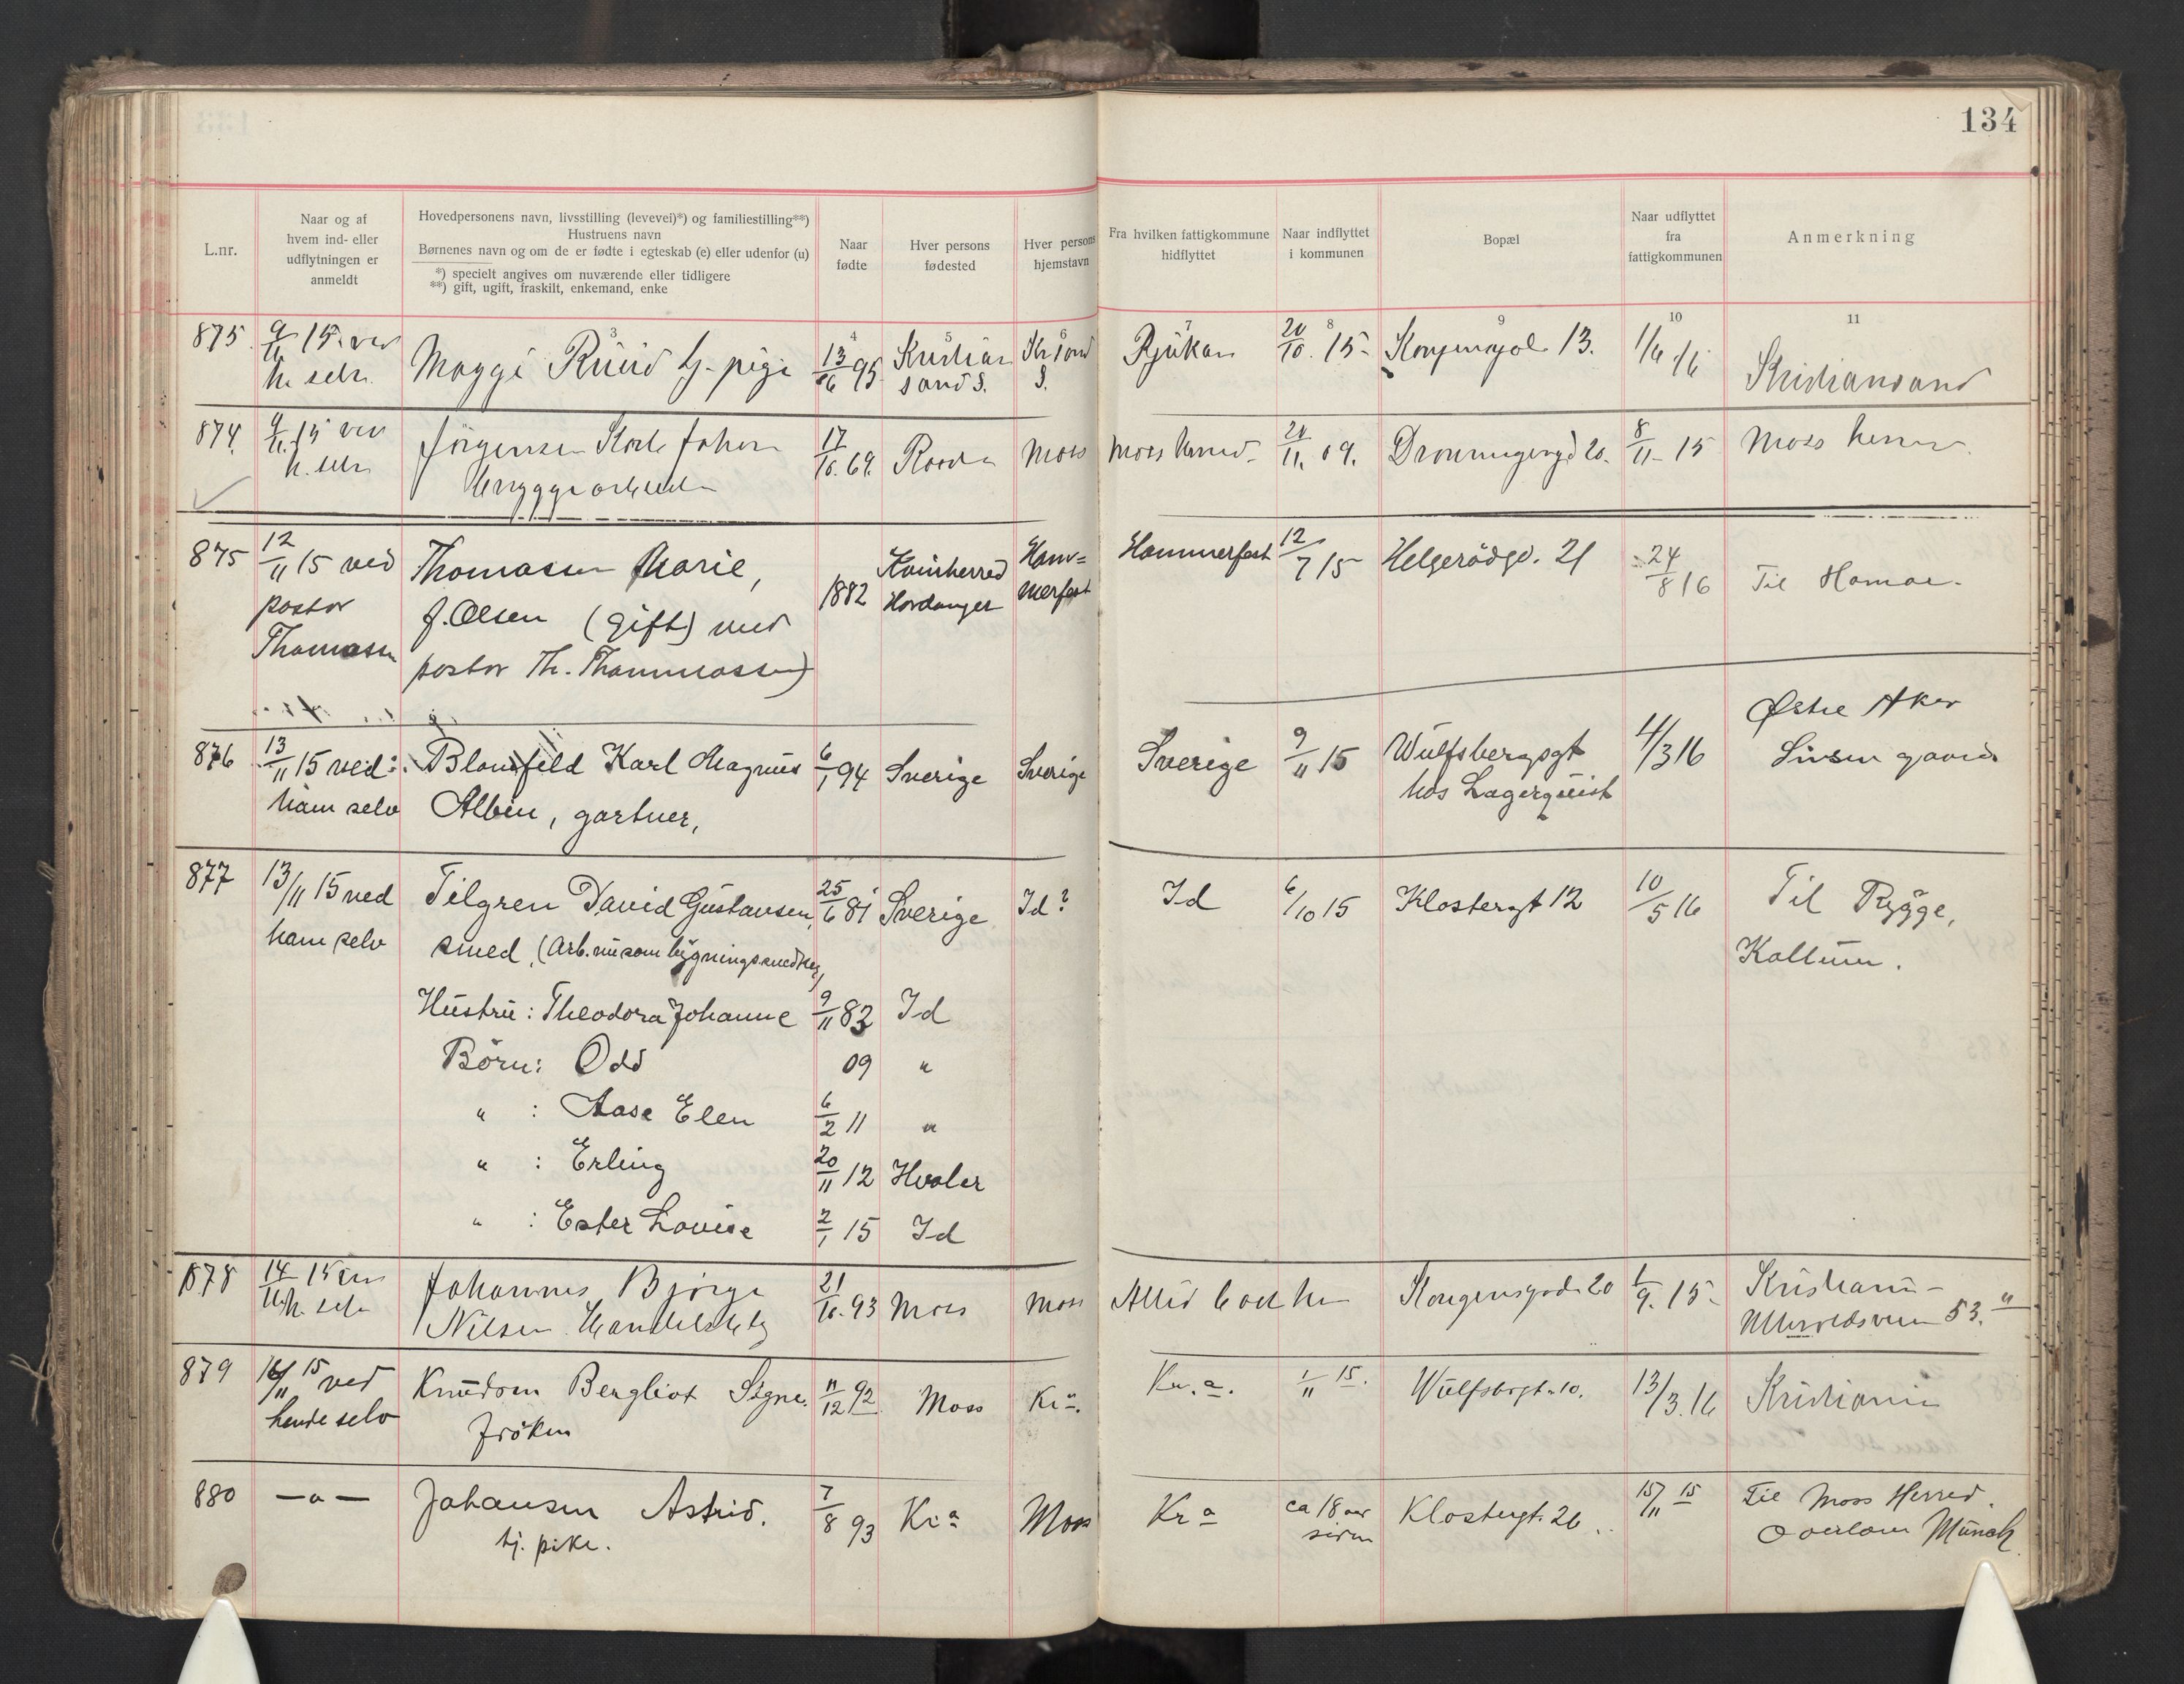 134
L.nr.
Naar og af
hvem ind- eller
udflytningen er
anmeldt
Hovedpersonens navn, livsstilling (levevei)*) og familiestilling**)
Hustruens navn
Børnenes navn og om de er fødte i egteskab (e) eller udenfor (u)
*) specielt angives om nuværende eller tidligere
**) gift, ugift, fraskilt, enkemand, enke
Naar
fødte
Hver persons
fødested
Hver persons
hjemstavn
Fra hvilken fattigkommune
hidflyttet
Naar indflyttet
i kommunen
Bopæl
Naar udflyttet
fra
fattigkommunen
Anmerkning
3 4 5 6 7 8 9 10 11
875 9/11 15 ved Maggi Ruud tj. pige 13/6 95 Kristian Kr.sand Rjukan 20/10 15 13. 1/4 16
h. selv sand S. S. Kristiansand
874 9/11 15 ved Jörgensen Johan 17/10 69 Moss Moss herred 11. 09. 20. 8/11 15 Moss herred
h. selv Bryggearbeider
875 12/11 15 ved Thomassen Marie, 1882 Kvinherred Ham= Hammerfest 12/7 15 Helgerödgd. 21 24/8 16 Til Hamar
pastor f. Olsen (gift) med Hardanger merfest
Thomassen pastor Th. Thommassen)
876 13/11 15 ved: Blomfeld Karl Magnus 6/1 94 Sverige Sverige Sverige 9/11 15 Wulfsbergsgt 4/3 16 Østre Aker
ham selv Albin, gartner, hos Lagerquist
877 13/11 15 ved Tilgren David Gustavsen, 25/6 81 Sverige Id? Id 6/10 15 Klostergt 12 10/5 16 Til Rygge,
ham selv smed, (Arb. nu som bygningssmed Kallum.
Hustru: Theodora Johanne 9/11 82 Id
Börn: Odd 09 "
" : Aase Elen 6/2 11 "
" : Erling 20/11 12 Hvaler
" : Ester Lovise 2/1 15 Id
878 14/11 15 ved Johannes Björge 21/10. 93 Moss Moss Altid boet her Kongensgade 20 1/9. 15 Kristiania
h. selv Nilsen Ullevoldsveien 53."
879 16/11 15 ved Knudsen Bergliot Signe. 11/12 92 Moss Kr.a. Kr.a. 1/11 15. Wulfsbrgt. 10. 13/3. 16 Kristiania
hende selv fröken
880 — " — Johansen Astrid. 7/8 93 Kr.a Moss Kr a ca 18 aar Klostergt. 26 15/11 15 Til Moss Herred.
tj. pike. siden Overlærer Münch